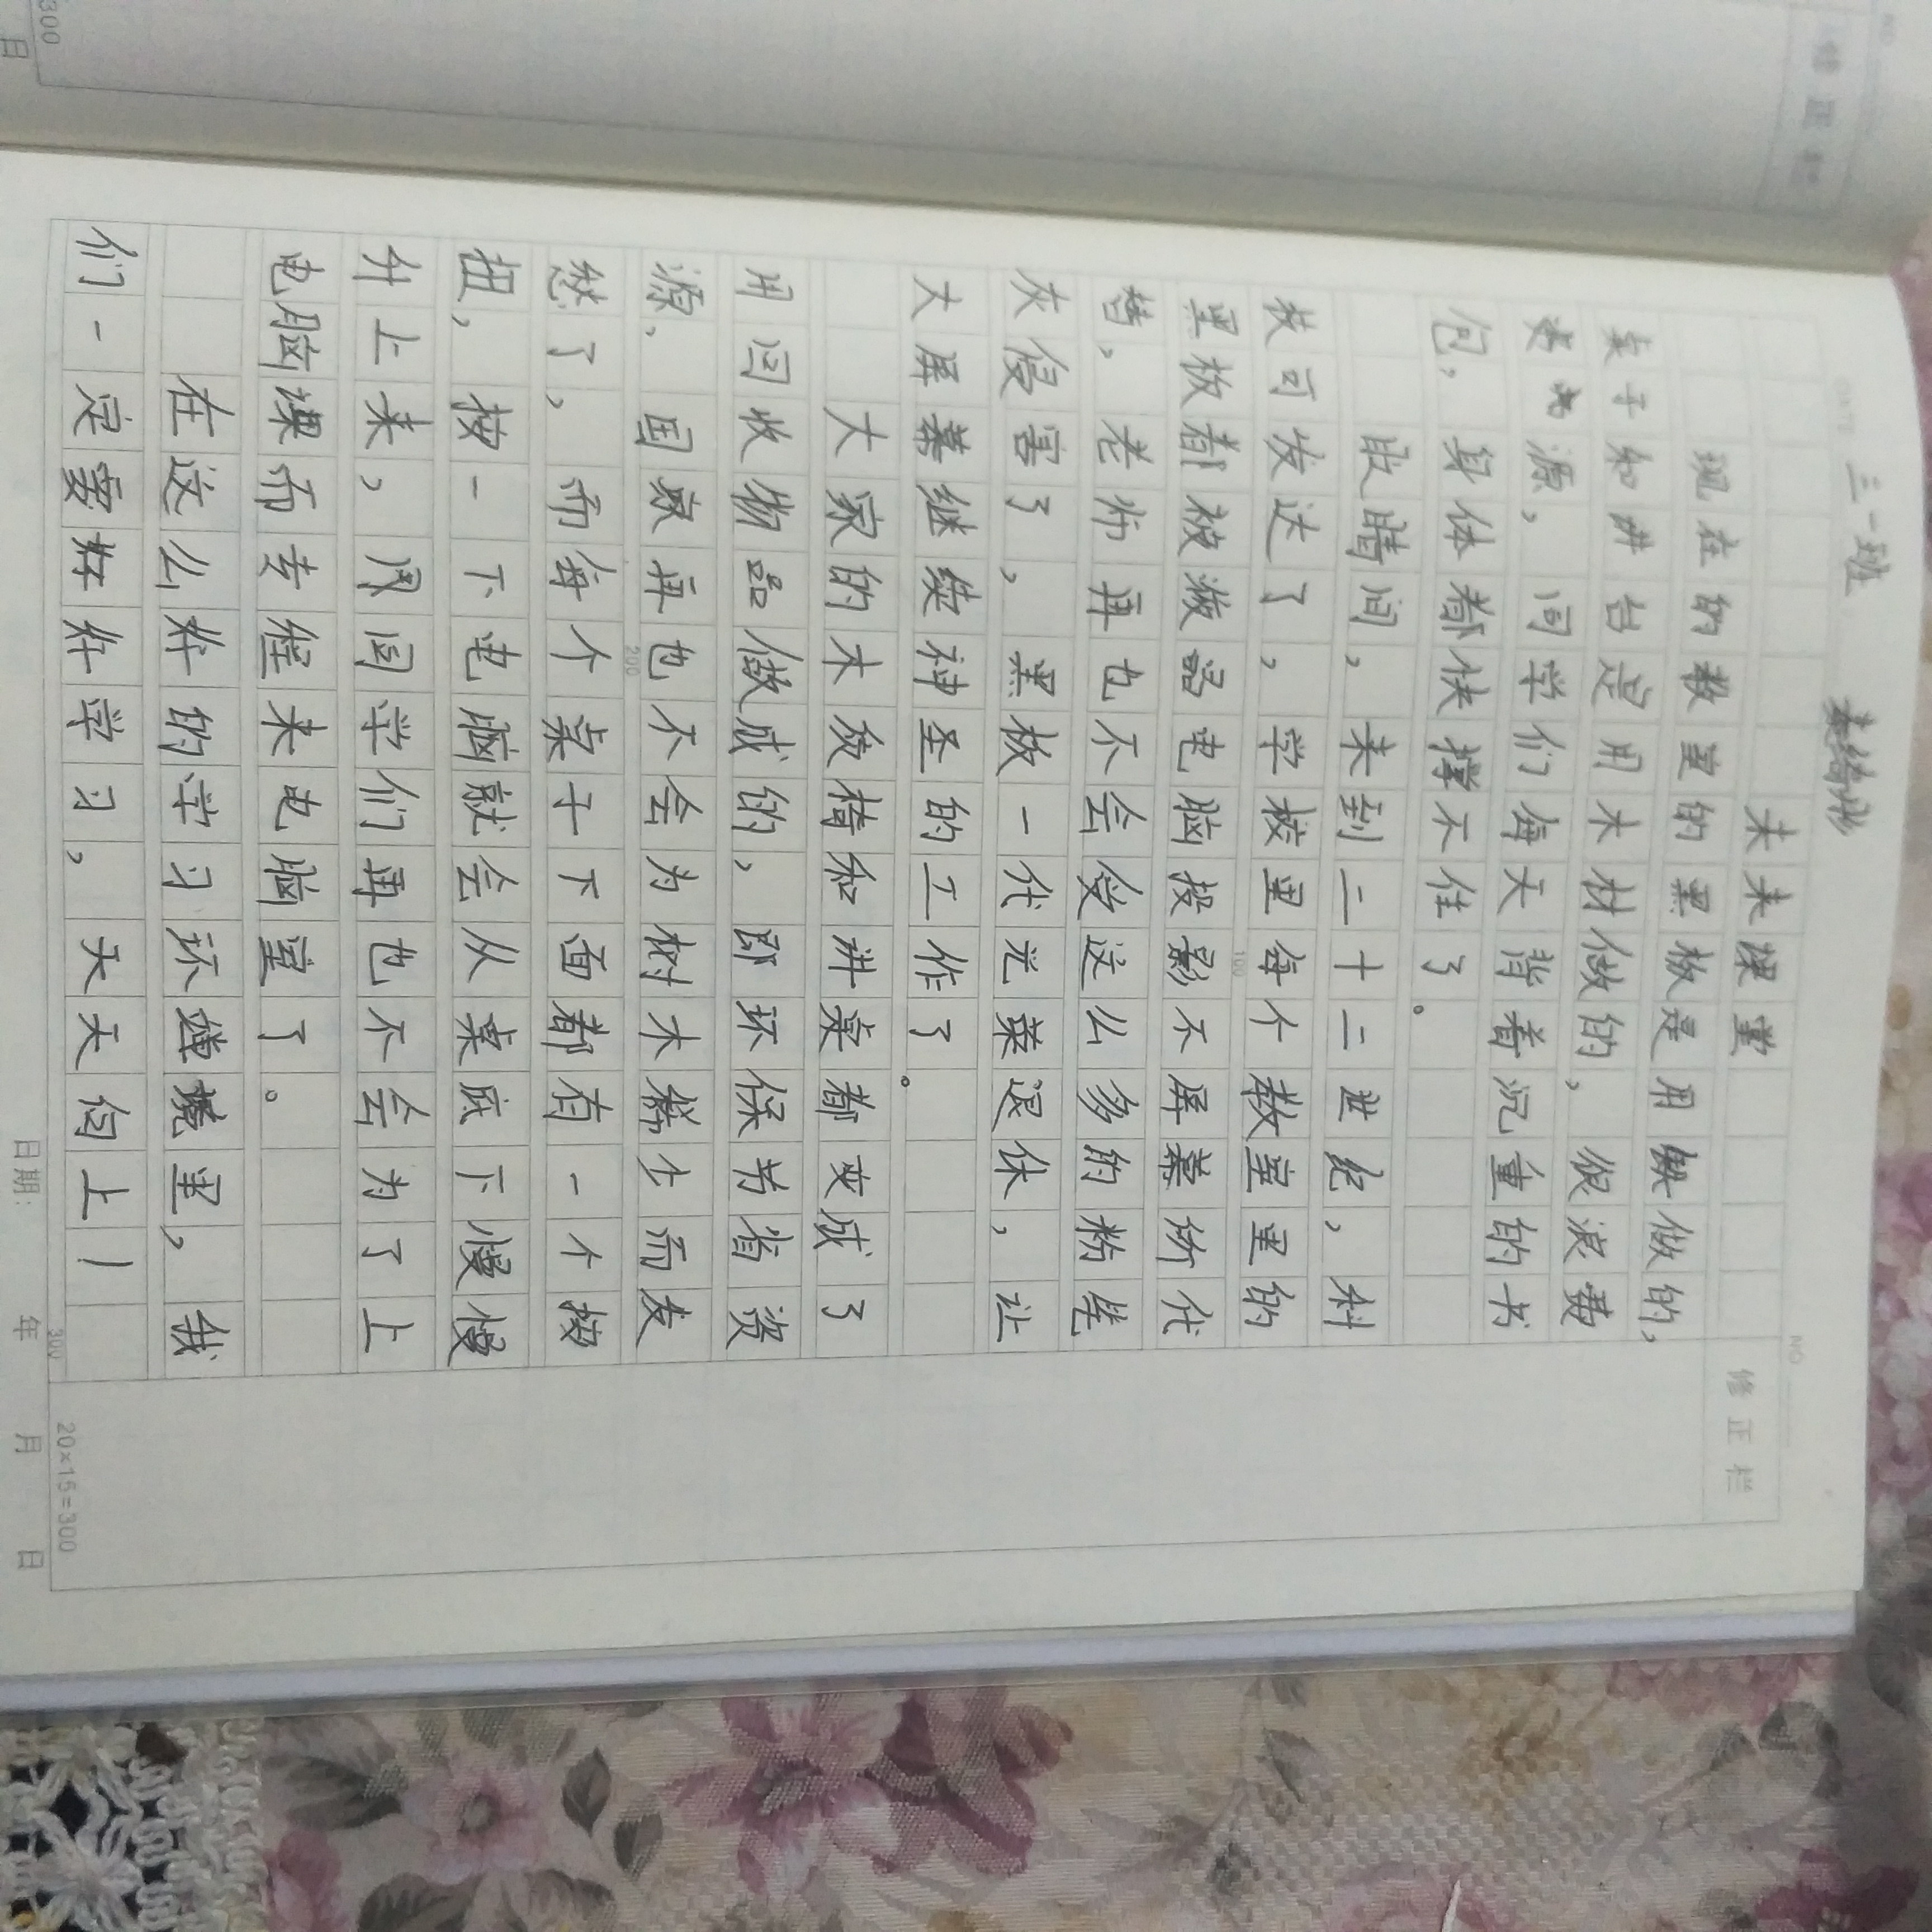 三一班
未来课堂
现在的教室的黑板是用铁做的,
桌子和讲台是用木材做的,很浪费
资源,同学们每天背着沉重的书
包,身体都快撑不住了。
眨睛间,来到二十二世纪,科
技可发达了,学校里每个教室里的
黑板都被液晶电脑投影不屏幕所代
替,老师再也不会受这么多的粉笔
灰侵害了,黑板一代光荣退休,让
大屏幕继续神圣的工作了。
大家的木板椅和讲桌都变成了
用回收物品做成的,即环保节省资
源,国家再也不会为树木稀少而发
愁了,而每个桌子下面都有一个按
扭,按一下电脑就会从桌底下慢慢
升上来,同学们再也不会为了上
电脑课而专程来电脑室了。
在这么好的学习环境里,我
们一定要好好学习,天天向上!
修正栏
NO
DATE
100
200
300
20×15=300
日期: 年 月 日
300
日
修正栏
NO